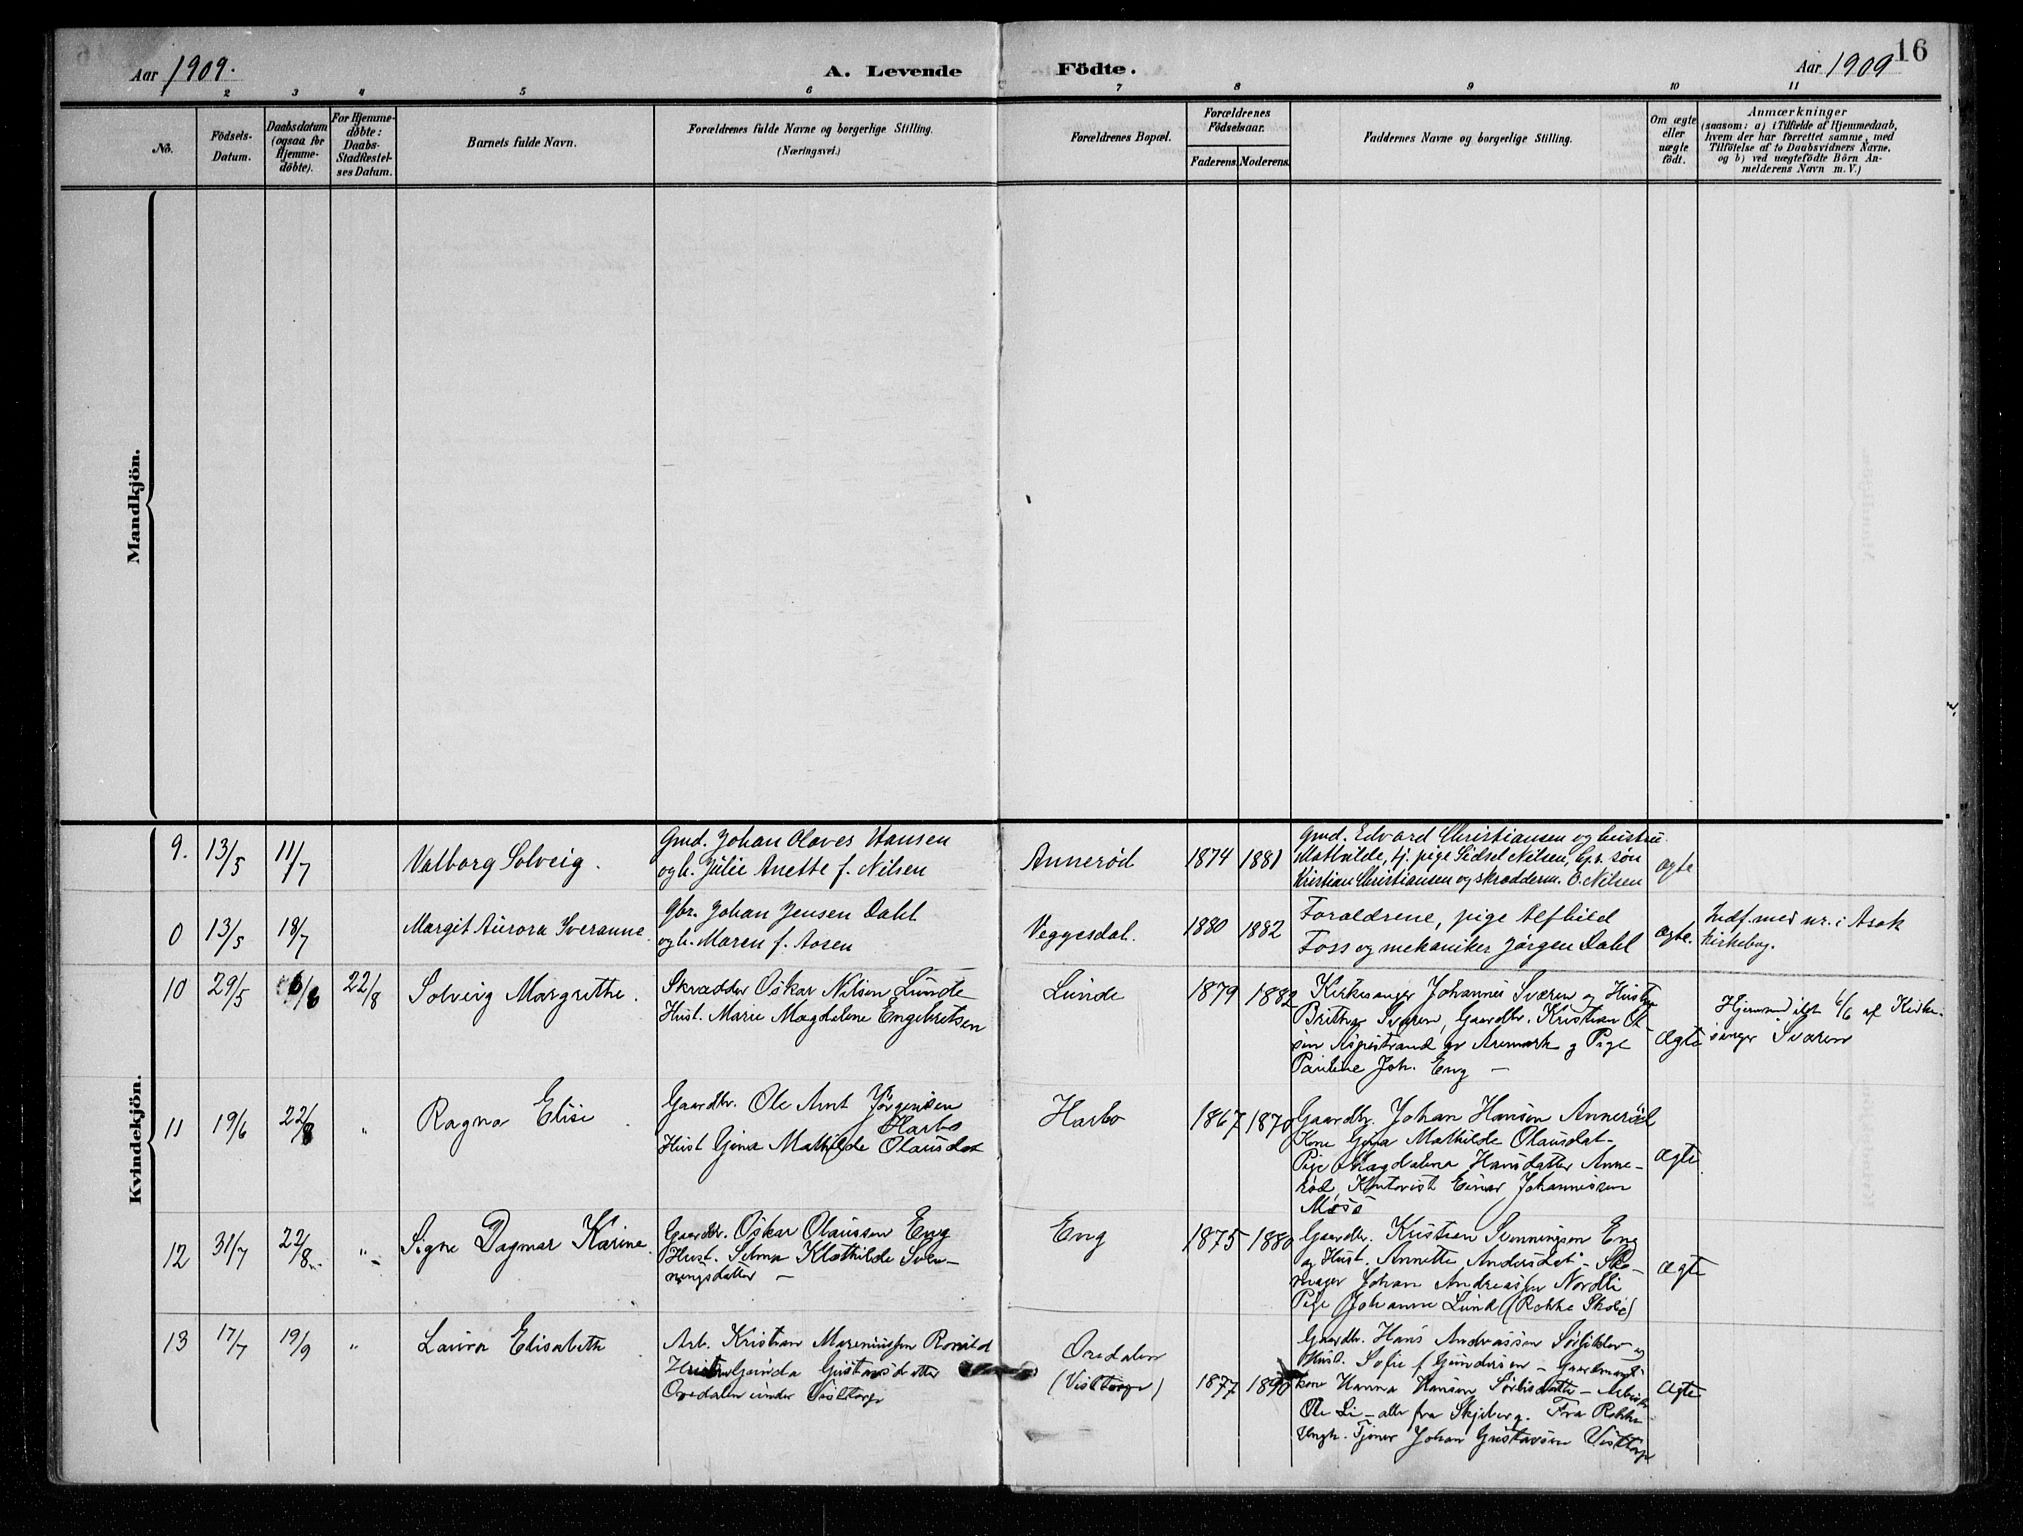 Aar 1909.
A. Levende Födte.
Aar 1909
16
1 2 3 4 5 6 7 8 9 10 11
No.
Födsels-
Datum.
Daabsdatum
(ogsaa for
Hjemme-
döbte).
For Hjemme-
döbte:
Daabs-
Stadfæstel-
ses Datum.
Barnets fulde Navn.
Forældrenes fulde Navne og borgerlige Stilling.
(Næringsvei.)
Forældrenes Bopæl.
Forældrenes
Födselsaar.
Faderens. Moderens.
Faddernes Navne og borgerlige Stilling.
Om ægte
eller
uægte
födt.
Anmærkninger
(saasom: a) i Tilfælde af Hjemmedaab,
hvem der har forrettet samme, med
Tilföielse af to Daabsvidners Navne.
og b) ved uægtefödte Börn An-
melderens Navn m. V.)
Mandkjön.
Kvindekjön.
9. 13/5 11/7
Valborg Solveig.
Gmd. Johan Olaves Hansen
og h. Julie Anette f. Nilsen
Annerød
1874 1881
Gmd. Edvard Christiansen og hustru
Mathilde, tj. pige Sidsel Nilsen, Gpr. søn
Kristian Christiansen og skrædderm. O. Nilsen
ægte
0 13/5 18/7
Margit Aurora Sveranne
Gbr. Johan Jensen Dahl
og h. Maren f. Aasen
Veggesdal.
1880 1882
Forældrene, pige Alfhild
Foss og mekaniker Jørgen Dahl
ægte.
Indf. med nr. i Asak
kirkebog.
10 29/5 6/6 22/8
Solveig Margrethe.
Skrædder Oskar Nilsen Lunde
Hust. Marie Magdalene Engebretsen
Lunde
1879 1882
Kirkesanger Johannes Sværen og Hustru
Sværen, Gaardbr. Kristian
Aspestrand Aremark og Pige
Pauline Joh. Eng —
Ægte
Hjemmedøbt 6/6 af Kirke-
sanger Sværen
11 19/6 22/8 "
Ragna Elise
Gaardbr. Ole Ant Jørgensen
Harbo
Hust Gina Mathilde Olausdat
Harbo
1867 1870
Gaardbr. Johan Hansen Annerød
Kone Gina Mathilde Olausdat-
Pige Magdalena Hansdatter Anne-
rød, Kontorist Einar Johannessen
Moss
Ægte
12 31/7 22/8 "
Signe Dagmar Karine
Gaardbr. Oskar Olaussen Eng
Hust. Selma Klothilde Sven-
ningsdatter —
Eng
1875 1880
Gaardbr. Kristian Svenningsen Eng
og Hust. Annette Andersdat - Sko-
mager Johan Andreassen Nordli
Pige Johanne Lund (Rokke Skole)
Ægte
13 17/7 19/9 "
Laura Elisabeth
Arb. Kristian Mareniussen
Gunda Gustavsdatter
Oredalen under Visttorp
Oredalen
(Visttorp)
1877 1890
Gaardbr. Hans Andreassen og
Hust. Sofie f Gundersen - Gaardmands-
kone Hanna Hansen
Ole Li - alle fra Skjeberg. Fra Rokke
Ungk. Tjener Johan Gustavsen Visttorp
Ægte